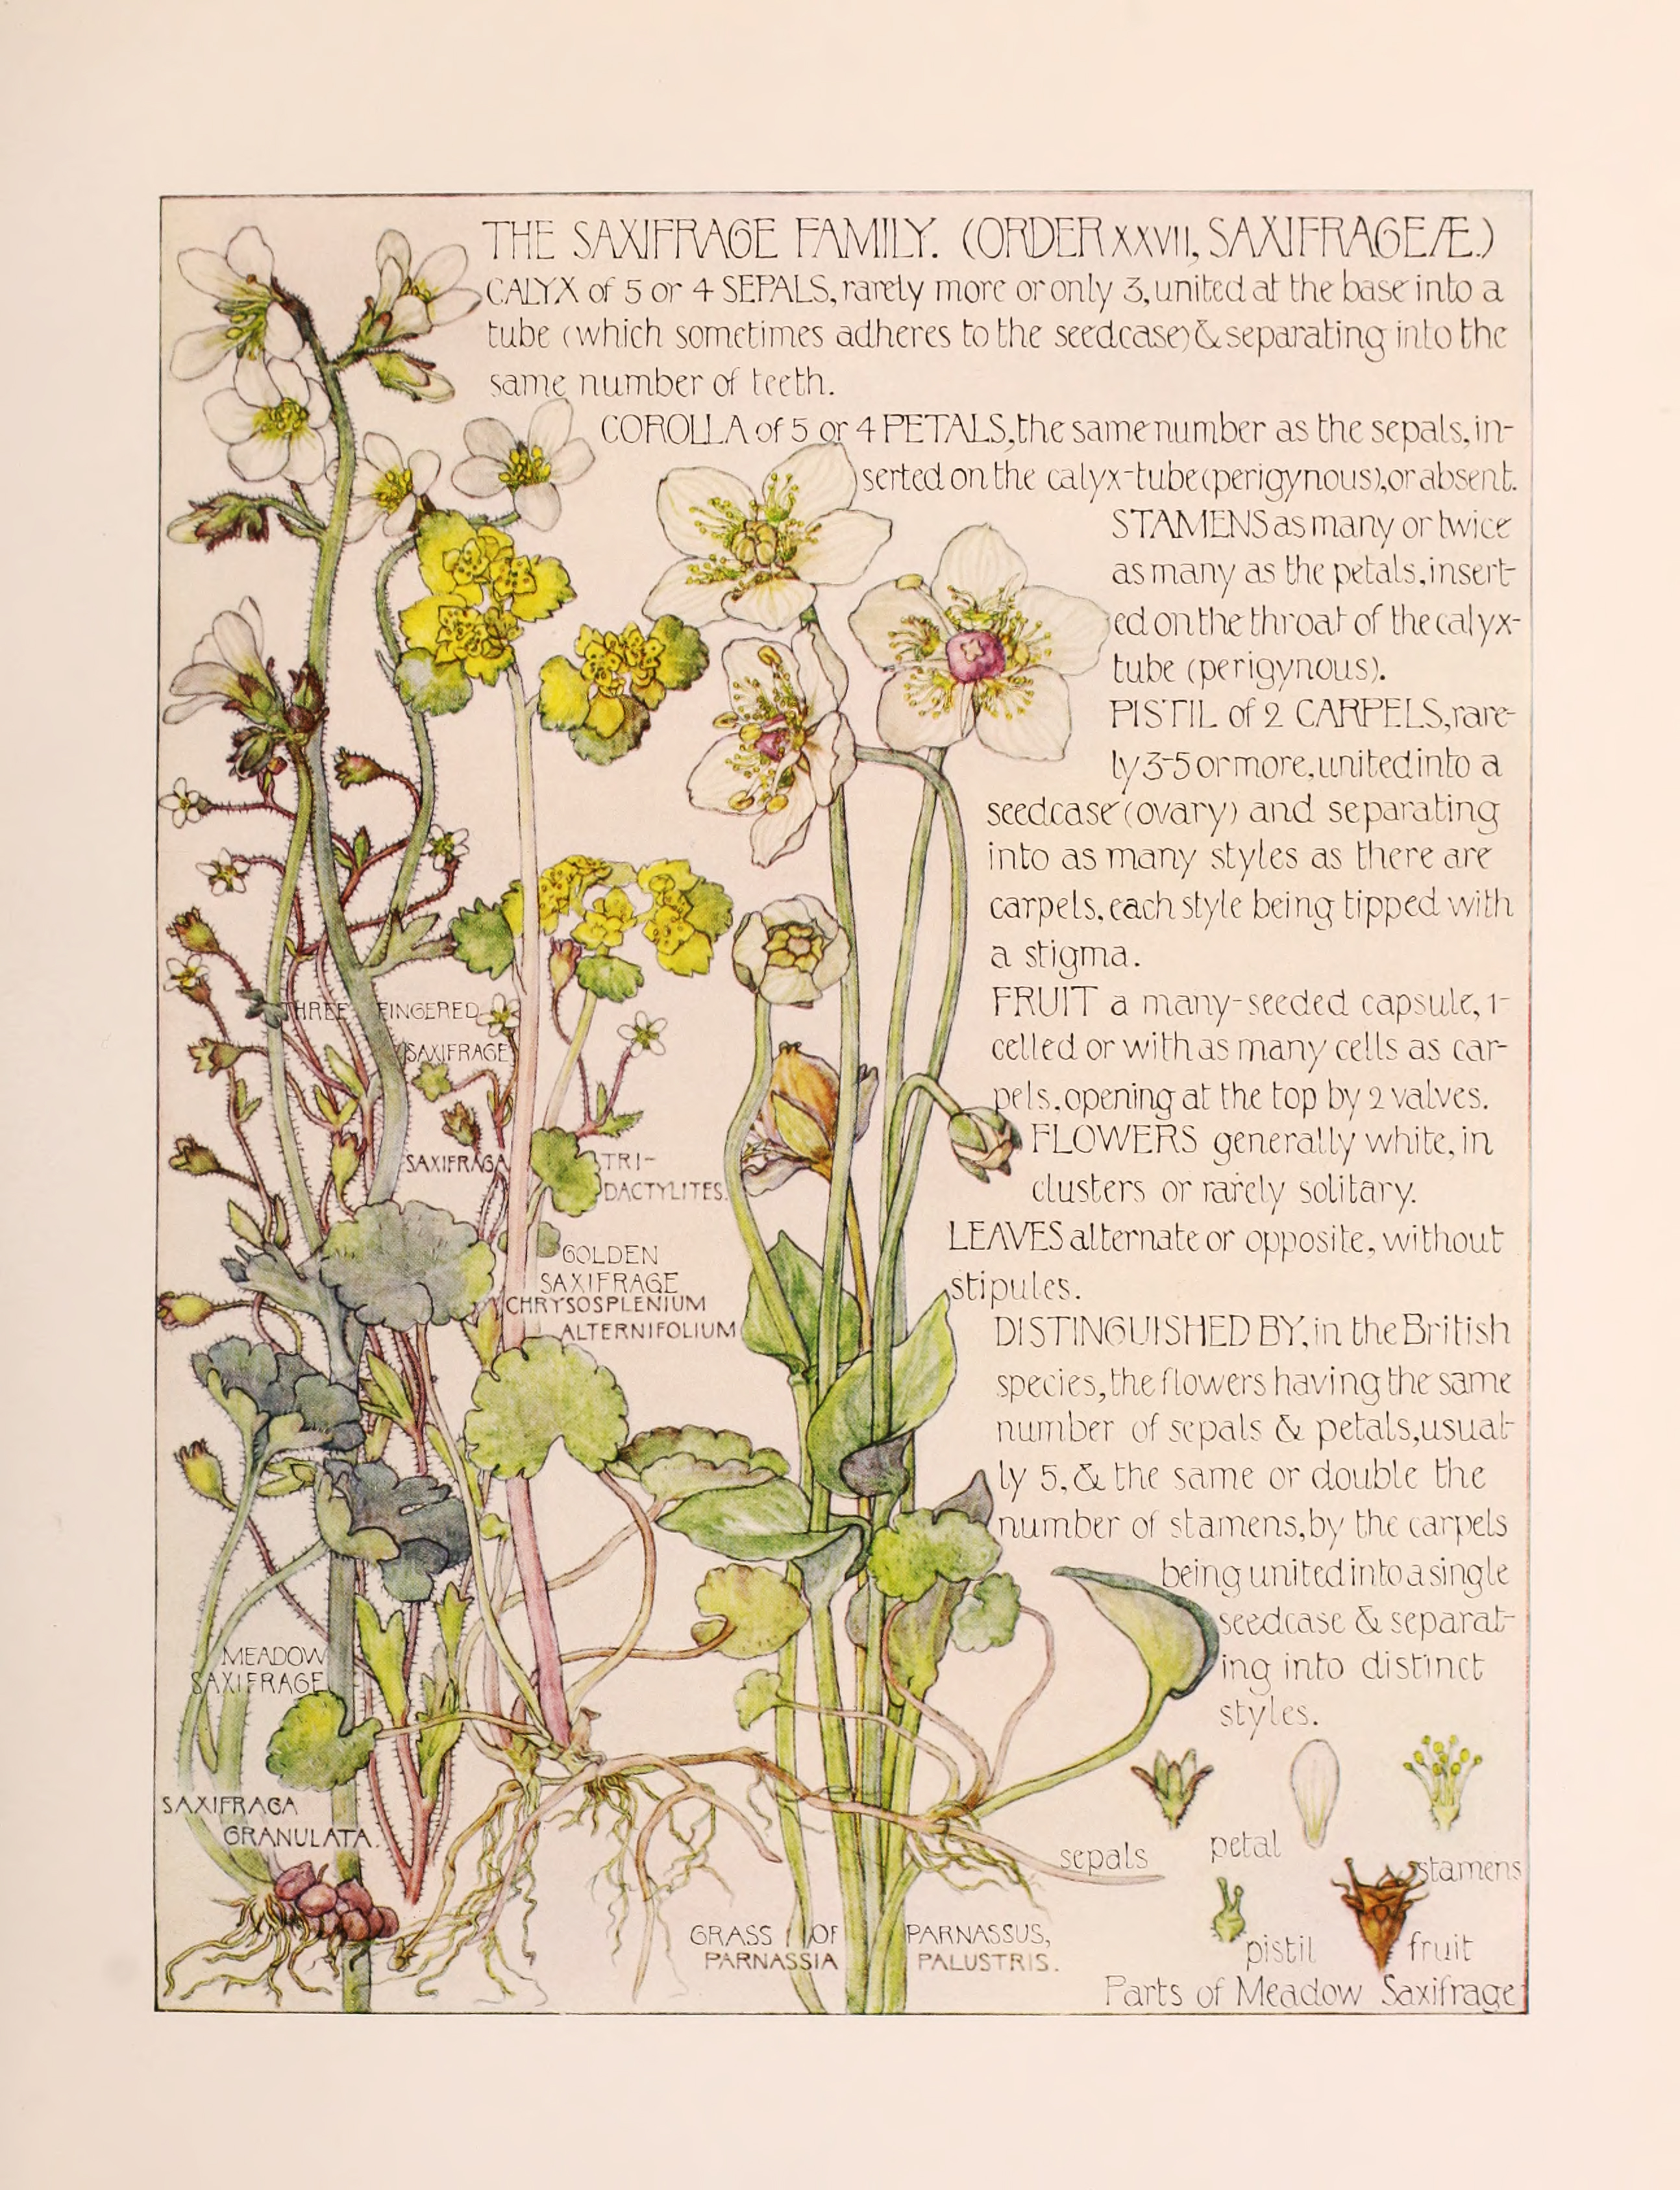 THE SAXIFRAGE FAMILY. (ORDER XXVII, SAXIFRAGEÆ.)
CALYX of 5 or 4 SEPALS, rarely more or only 3, united at the base into a
tube (which sometimes adheres to the seedcase) & separating into the
same number of teeth.
COROLLA of 5 or 4 PETALS, the same number as the sepals, in-
serted on the calyx-tube (perigynous), or absent.
STAMENS as many or twice
as many as the petals, insert-
ed on the throat of the calyx-
tube (perigynous).
PISTIL of 2 CARPELS, rare-
ly 3-5 or more, united into a
seedcase (ovary) and separating
into as many styles as there are
carpels, each style being tipped with
a stigma.
FRUIT a many-seeded capsule, 1-
celled or with as many cells as car-
pels, opening at the top by 2 valves.
FLOWERS generally white, in
clusters or rarely solitary.
LEAVES alternate or opposite, without
stipules.
DISTINGUISHED BY, in the British
species, the flowers having the same
number of sepals & petals, usual-
ly 5, & the same or double the
number of stamens, by the carpels
being united into a single
seedcase & separat-
ing into distinct
styles.
THREE FINGERED
SAXIFRAGE
SAXIFRAGA TRI-
DACTYLITES.
GOLDEN
SAXIFRAGE
CHRYSOSPLENIUM
ALTERNIFOLIUM
MEADOW
SAXIFRAGE
SAXIFRAGA
GRANULATA.
GRASS OF PARNASSUS,
PARNASSIA PALUSTRIS.
sepals
petal
stamens
pistil
fruit
Parts of Meadow Saxifrage